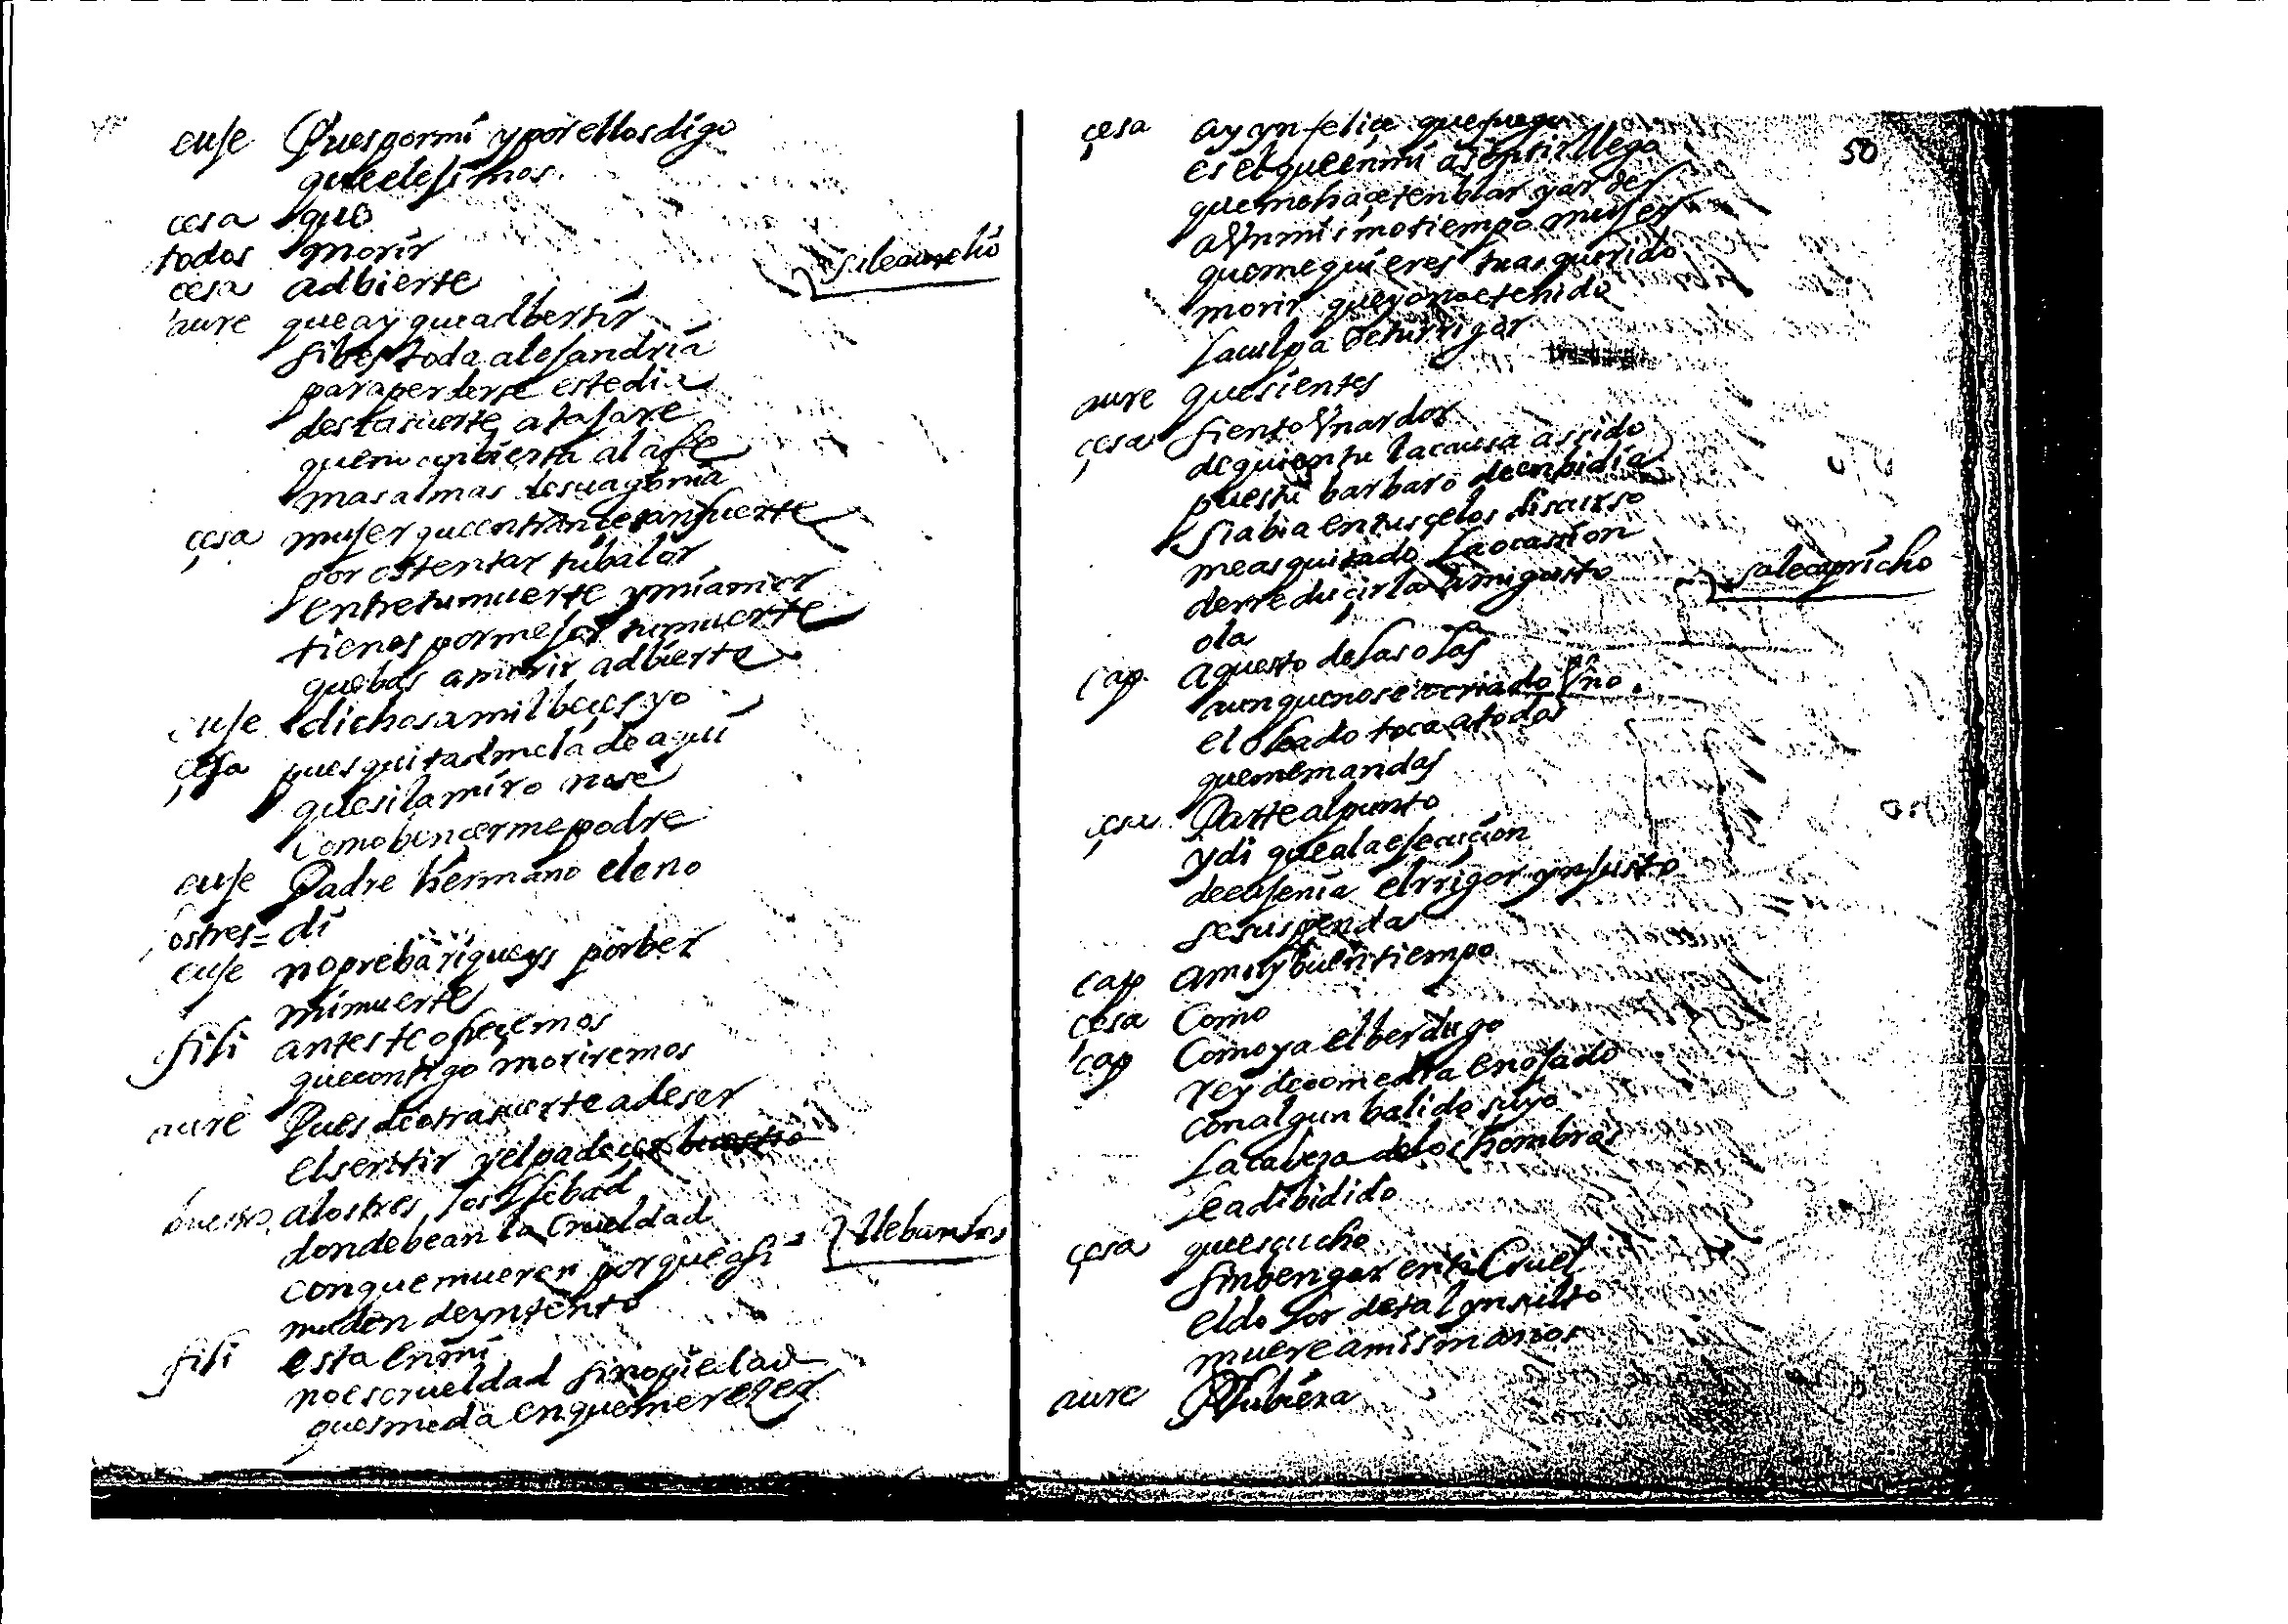 euse Pues por mi y por ellos digo
que elesimos
cesa que
todos morir
cesa adbierte
aure que ay que adbertir
si bes toda alesandria
para perderse este dia
desta suerte atasare
que no conbierta a la fe
mas almas de su agonia
çesa muser que en trançe tan fuerte
por ostentar tu balor
entre tu muerte y mi amor
tienes por mesor tu muerte
que bas a morir adbierte
euse dichosa mil beçes yo
çesa pues quitadmela de aqui
que si la miro no se
como bencerme podre
euse Padre hermano eleno
los tres= di
euse no prebariqueys por ber
mi muerte
fili antes te ofreçemos
que contigo moriremos
aure Pues de otra suerte a de ser
el sentir y el padecer
buestro a los tres los llebad
donde bean la crueldad
con que mueren porque asi } lleban los
muden de yntento
fili esta en mi
no es crueldad sino piedad
pues me da en que mereçer
çesa ay ynfeliçe que fuego
50
es el que en mi a sentir llega
que me haçe tenblar y arder
a Vn mismo tiempo muser
que me quieres tu as querido
morir que yo no e tenido
la culpa de tu rrigor
aure que sientes
çesa siento Vn ardor
de quien tu la causa as sido
pues tu barbaro de enbidia
rabia en tus çelos discurso
me as quitado la ocasion
de rreduçirla a mi gusto } sale capricho
ola
cap aquesto de las olas
aunque no sea criado Vno
el oleado toca a todos
que me mandas
çesa Parte al punto
y di que a la esecuçion
de eusenia el rrigor ynsusto
se suspenda
cap a muy buen tiempo
çesa Como
cap Como ya el berdugo
rey de comedia enosado
con algun balido suyo
la cabeza de los hombros
le a dibidido
çesa que escucho
sin bengar en ti Cruel
el dolor de tal ynsulto
muere a mis manos
aure Tubiera